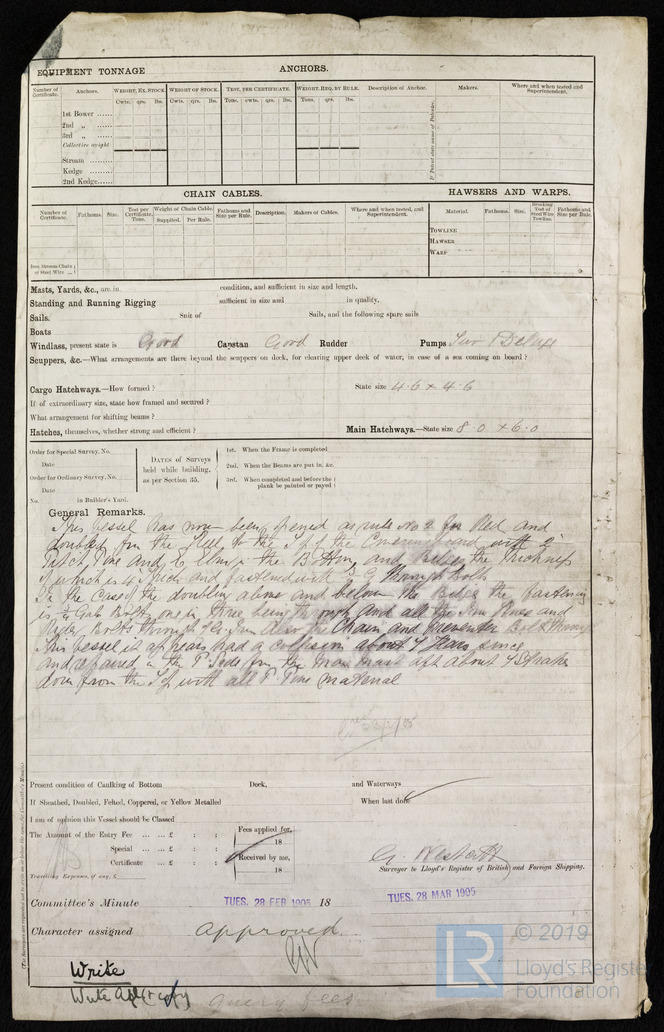 EQUIPMENT TONNAGE
ANCHORS.
Number of Certificate.
Anchors.
WEIGHT, EX. STOCK.
WEIGHT OF STOCK.
TEST, PER CERTIFICATE.
WEIGHT, REQ. BY RULE.
Description of Anchor.
Makers.
Where and when tested and Superintendent.
Cwts. qrs. lbs. Cwts. qrs. lbs. Tons. cwts. qrs. lbs. Tons. qrs. lbs.
1st Bower ......
2nd „ ......
3rd „ ......
Collective weight
Stream ......
Kedge ......
2nd Kedge......
CHAIN CABLES.
HAWSERS AND WARPS.
Number of Certificate.
Fathoms.
Size.
Test per Certificate. Tons.
Weight of Chain Cable.
Supplied. Per Rule.
Fathoms and Size per Rule.
Description.
Makers of Cables.
Where and when tested, and Superintendent.
Material.
Fathoms.
Size.
Breaking Test of Steel Wire Towline.
Fathoms and Size per Rule.
TOWLINE
HAWSER
WARP
Iron Stream Chain or Steel Wire ...
Masts, Yards, &c., are in condition, and sufficient in size and length.
Standing and Running Rigging sufficient in size and in quality.
Sails. Suit of Sails, and the following spare sails
Boats
Windlass, present state is Good Capstan Good Rudder Pumps Two
Scuppers, &c.—What arrangements are there beyond the scuppers on deck, for clearing upper deck of water, in case of a sea coming on board?
Cargo Hatchways.—How formed? State size 4.6 x 4.6
If of extraordinary size, state how framed and secured?
What arrangement for shifting beams?
Hatches, themselves, whether strong and efficient? Main Hatchways.—State size 8.0 x 6.0
Order for Special Survey, No.
Date
Order for Ordinary Survey, No.
Date
No. in Builder's Yard.
DATES of Surveys held while building, as per Section 35.
1st. When the Frame is completed
2nd. When the Beams are put in, &c.
3rd. When completed and before the plank be painted or payed
General Remarks.
This vessel has now been opened as rule No 2 for Red and
doubled from the Keel to the Top of the with 2
Pitch Pine and to Elm in the Bottom and Bilges the thickness
of which is 4 and fastened with Through Bolts
In the case of the doubling above and below the Bilges the fastening
is Galv Bolts, one in three being through and all the Iron Knee and
Rider Bolts through Also the Chain and preventer Bolts
This vessel it appears had a collision about 7 Years since
and repaired in the P Side from the Main mast aft about 7 Strakes
down from the Top with all P Pine material
Present condition of Caulking of Bottom Deck, and Waterways
If Sheathed, Doubled, Felted, Coppered, or Yellow Metalled When last done
I am of opinion this Vessel should be Classed
The Amount of the Entry Fee ... ... £ : :
Special ... ... £ : :
Certificate ... £ : :
Travelling Expenses, if any, £
Fees applied for,
18
Received by me,
18
Surveyor to Lloyd's Register of British and Foreign Shipping.
Committee's Minute TUES. 28 FEB 1905 18 TUES. 28 MAR 1905
Character assigned approved
Write
query fees
© 2019
LR
Lloyd's Register
Foundation